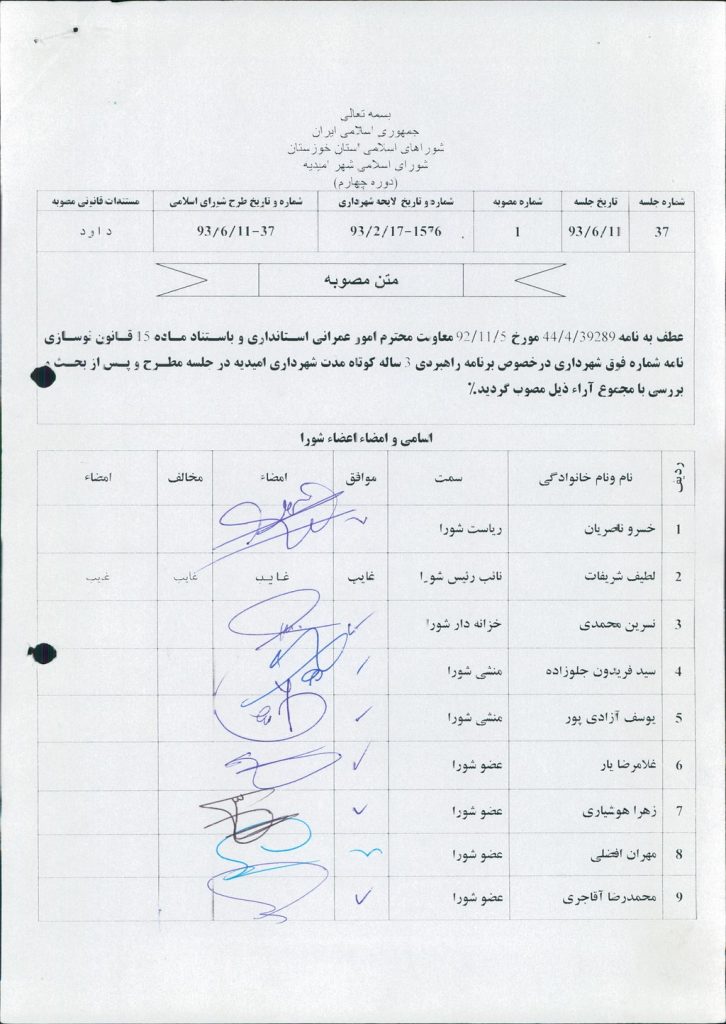 بسمه تعالی
جمهوری اسلامی ایران
شوراهای اسلامی استان خوزستان
شورای اسلامی شهر امیدیه
(دوره چهارم)
شماره جلسه تاریخ جلسه شماره مصوبه شماره و تاریخ لایحه شهرداری شماره و تاریخ طرح شورای اسلامی مستندات قانونی مصوبه
37 93/6/11 1 93/2/17-1576 93/6/11-37 دارد
متن مصوبه
عطف به نامه 44/4/39289 مورخ 92/11/5 معاونت محترم امور عمرانی استانداری و باستناد ماده 15 قانون نوسازی
نامه شماره فوق شهرداری درخصوص برنامه راهبردی 3 ساله کوتاه مدت شهرداری امیدیه در جلسه مطرح و پس از بحث و
بررسی با مجموع آراء ذیل مصوب گردید.٪
اسامی و امضاء اعضاء شورا
ردیف نام ونام خانوادگی سمت موافق امضاء مخالف امضاء
1 خسرو ناصریان ریاست شورا
2 لطیف شریفات نائب رئیس شورا غایب غایب غایب غیب
3 نسرین محمدی خزانه دار شورا
4 سید فریدون جلوزاده منشی شورا
5 یوسف آزادی پور منشی شورا
6 غلامرضا یار عضو شورا
7 زهرا هوشیاری عضو شورا
8 مهران افضلی عضو شورا
9 محمدرضا آقاجری عضو شورا